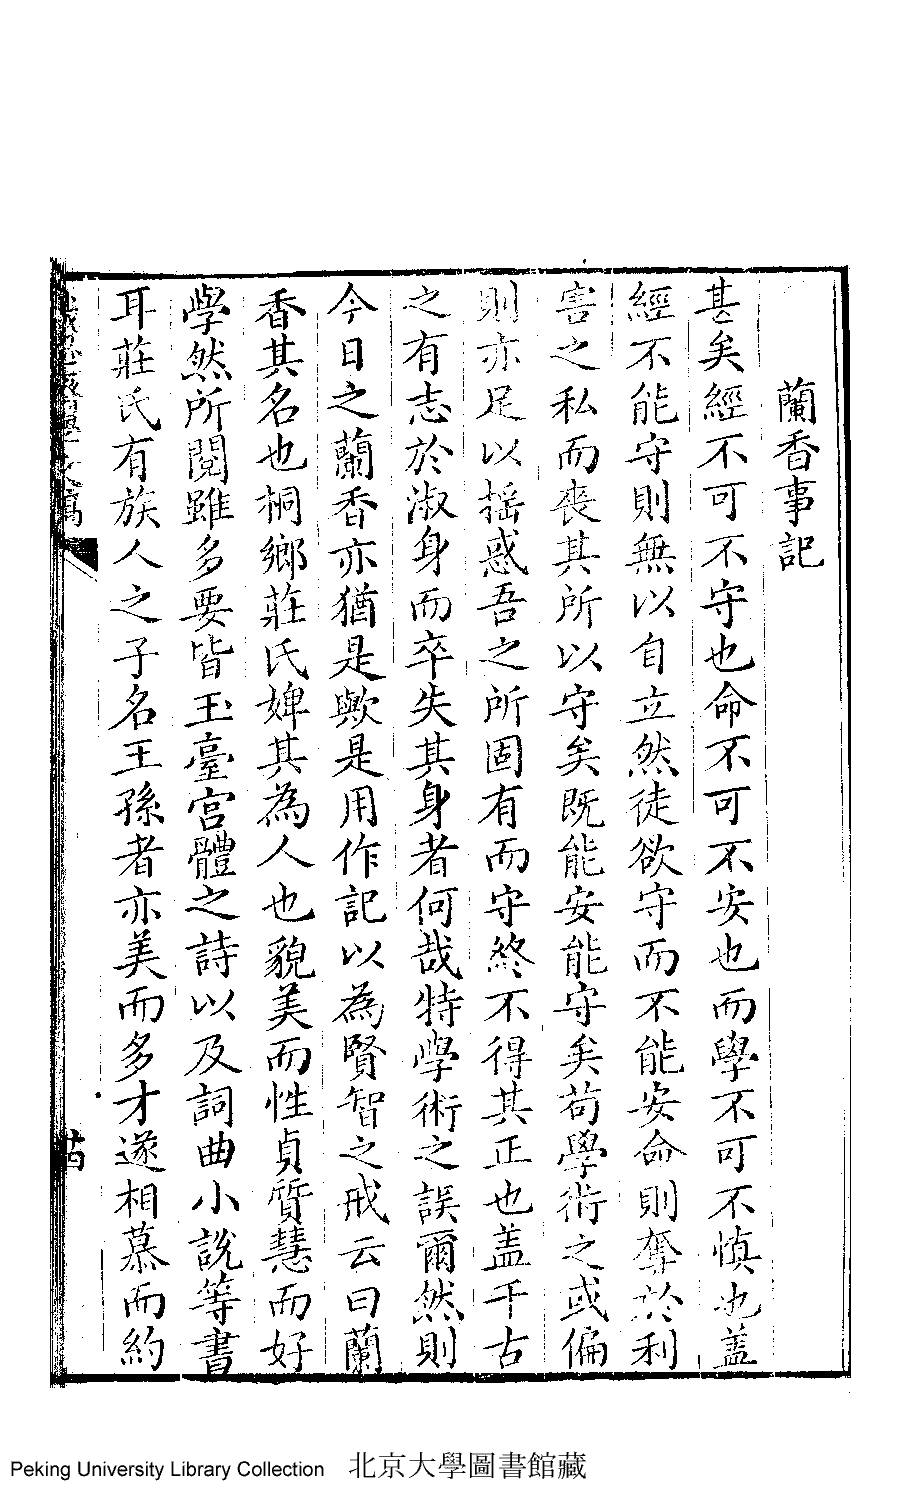 蘭香事記
甚矣經不可不守也命不可不安也而學不可不慎也蓋
經不能守則無以自立然徒欲守而不能安命則奪於利
害之私而喪其所以守矣旣能安能守矣苟學術之或偏
則亦足以摇惑吾之所固有而守終不得其正也盖千古
之有志於淑身而卒失其身者何哉特學術之誤爾然則
今日之蘭香亦猶是歟是用作記以為賢智之戒云曰蘭
香其名也桐鄉莊氏婢其為人也貌美而性貞質慧而好
學然所閱雖多要皆玉臺宮體之詩以及詞曲小說等書
耳莊氏有族人之子名王孫者亦美而多才遂相慕而約
Peking University Library Collection 北京大學圖書館藏